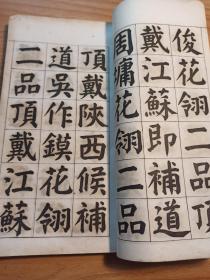 俊花翎二品頂
戴江蘇即補道
周𤩽花翎二品
頂戴陝西候補
道吳作鏌花翎
二品頂戴江蘇